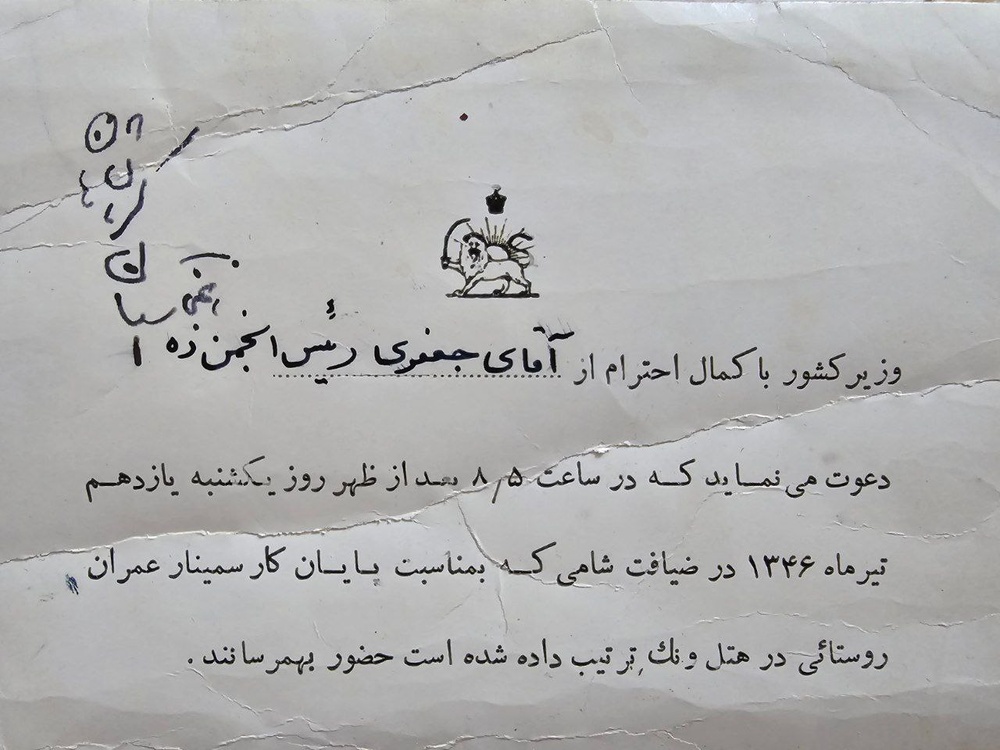 وزیر کشور با کمال احترام از آقای جعفری رئیس انجمن ده
دعوت می نمـاید کـه در ساعت ۸/۵ بعد از ظهر روز یکشنبه یازدهم
تیر ماه ۱۳۴۶ در ضیافت شامی کـه بمناسبت پـایـان کار سمینار عمران
روستائی در هتل ونک ترتیب داده شده است حضور بهمرسانند .